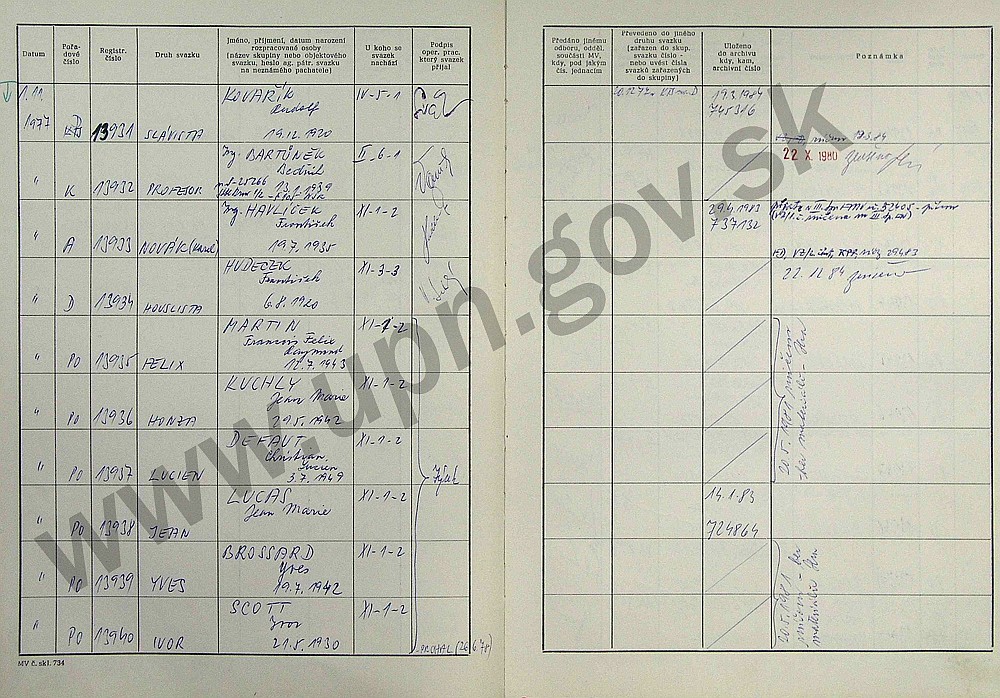 Datum
Pořa-
dové
číslo
Registr.
číslo
Druh svazku
Jméno, příjmení, datum narození
rozpracované osoby
(název skupiny nebo objektového
svazku, heslo ag. pátr. svazku
na neznámého pachatele)
U koho se
svazek
nachází
Podpis
oper. prac.
který svazek
přijal
Předáno jinému
odboru, odděl.
součásti MV,
kdy, pod jakým
čís. jednacím
Převedeno do jiného
druhu svazku
(zařazen do skup.
svazku číslo -
nebo uvést čísla
svazků zařazených
do skupiny)
Uloženo
do archivu
kdy, kam,
archivní číslo
Poznámka
1.11.
1977
13931
SLÁVISTA
KOVAŘÍK
Rudolf
19.12.1920
IV-5-1
19.3.1984
745316
"
K
13932
PROFESOR
Ing. BARTŮNĚK
Bedřich
13.1.1939
II-6-1
22 X. 1980
"
A
13933
NOVÁK (Karel)
Ing. HAVLÍČEK
František
19.7.1935
XI-1-2
29.4.1983
737132
"
D
13934
HOUSLISTA
HUDEČEK
František
6.8.1920
XI-3-3
22.12.84
"
PO
13935
FELIX
MARTIN
Francois Felix
Raymond
12.7.1943
XI-1-2
"
PO
13936
HONZA
KUCHLY
Jean Marie
29.5.1942
XI-1-2
20.5.1981 zničeno
bez materiálu
"
PO
13937
LUCIEN
DEFAUT
Christian
Lucien
3.7.1949
XI-1-2
"
PO
13938
JEAN
LUCAS
Jean Marie
XI-1-2
14.1.83
724864
"
PO
13939
YVES
BROSSARD
Yves
19.7.1942
XI-1-2
20.5.1981
zničeno - bez
materiálu
"
PO
13940
IVOR
SCOTT
Ivor
21.5.1930
XI-1-2
MV č. skl. 734
www.upn.gov.sk